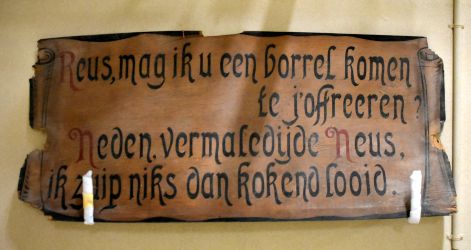 Reus, mag ik u een borrel komen
te j'offreeren?
Neden. vermaledijde Neus,
ik zuip niks dan kokend looid.